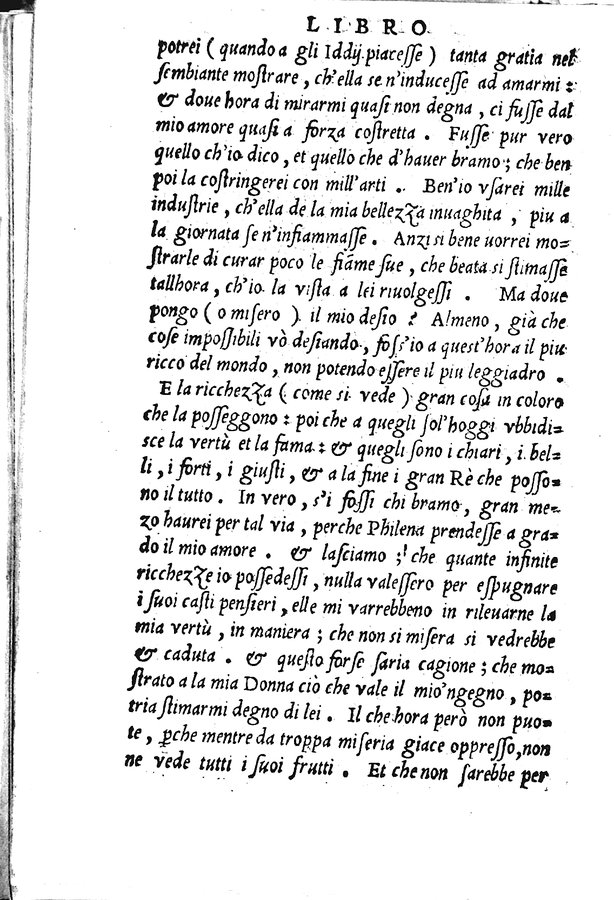 LIBRO
potrei ( quando a gli Iddij piacesse ) tanta gratia nel
sembiante mostrare , ch'ella se n'inducesse ad amarmi :
& doue hora di mirarmi quasi non degna , ci fusse dal
mio amore quasi a forza costretta . Fusse pur vero
quello ch'io dico , et quello che d'hauer bramo ; che ben
poi la costringerei con mill'arti . Ben'io vsarei mille
industrie , ch'ella de la mia bellezza inuaghita , piu a
la giornata se n'infiammasse . Anzi si bene uorrei mo=
strarle di curar poco le fiāme sue , che beata si stimasse
tallhora , ch'io la vista a lei riuolgessi . Ma doue
pongo ( o misero ) il mio desio ? Almeno , già che
cose impossibili vò desiando , foss'io a quest'hora il piu
ricco del mondo , non potendo essere il piu leggiadro .
E la ricchezza ( come si vede ) gran cosa in coloro
che la posseggono : poi che a quegli sol'hoggi vbbidi=
sce la vertù et la fama : & quegli sono i chiari , i bel=
li , i forti , i giusti , & a la fine i gran Rè che posso=
no il tutto . In vero , s'i fossi chi bramo , gran me=
zo haurei per tal via , perche Philena prendesse a gra=
do il mio amore . & lasciamo ; che quante infinite
ricchezze io possedessi , nulla valessero per espugnare
i suoi casti pensieri , elle mi varrebbeno in rileuarne la
mia vertù , in maniera ; che non si misera si vedrebbe
& caduta . & questo forse saria cagione ; che mo=
strato a la mia Donna ciò che vale il mio'ngegno , po=
tria stimarmi degno di lei . Il che hora però non puo=
te , ꝑche mentre da troppa miseria giace oppresso , non
ne vede tutti i suoi frutti . Et che non sarebbe per